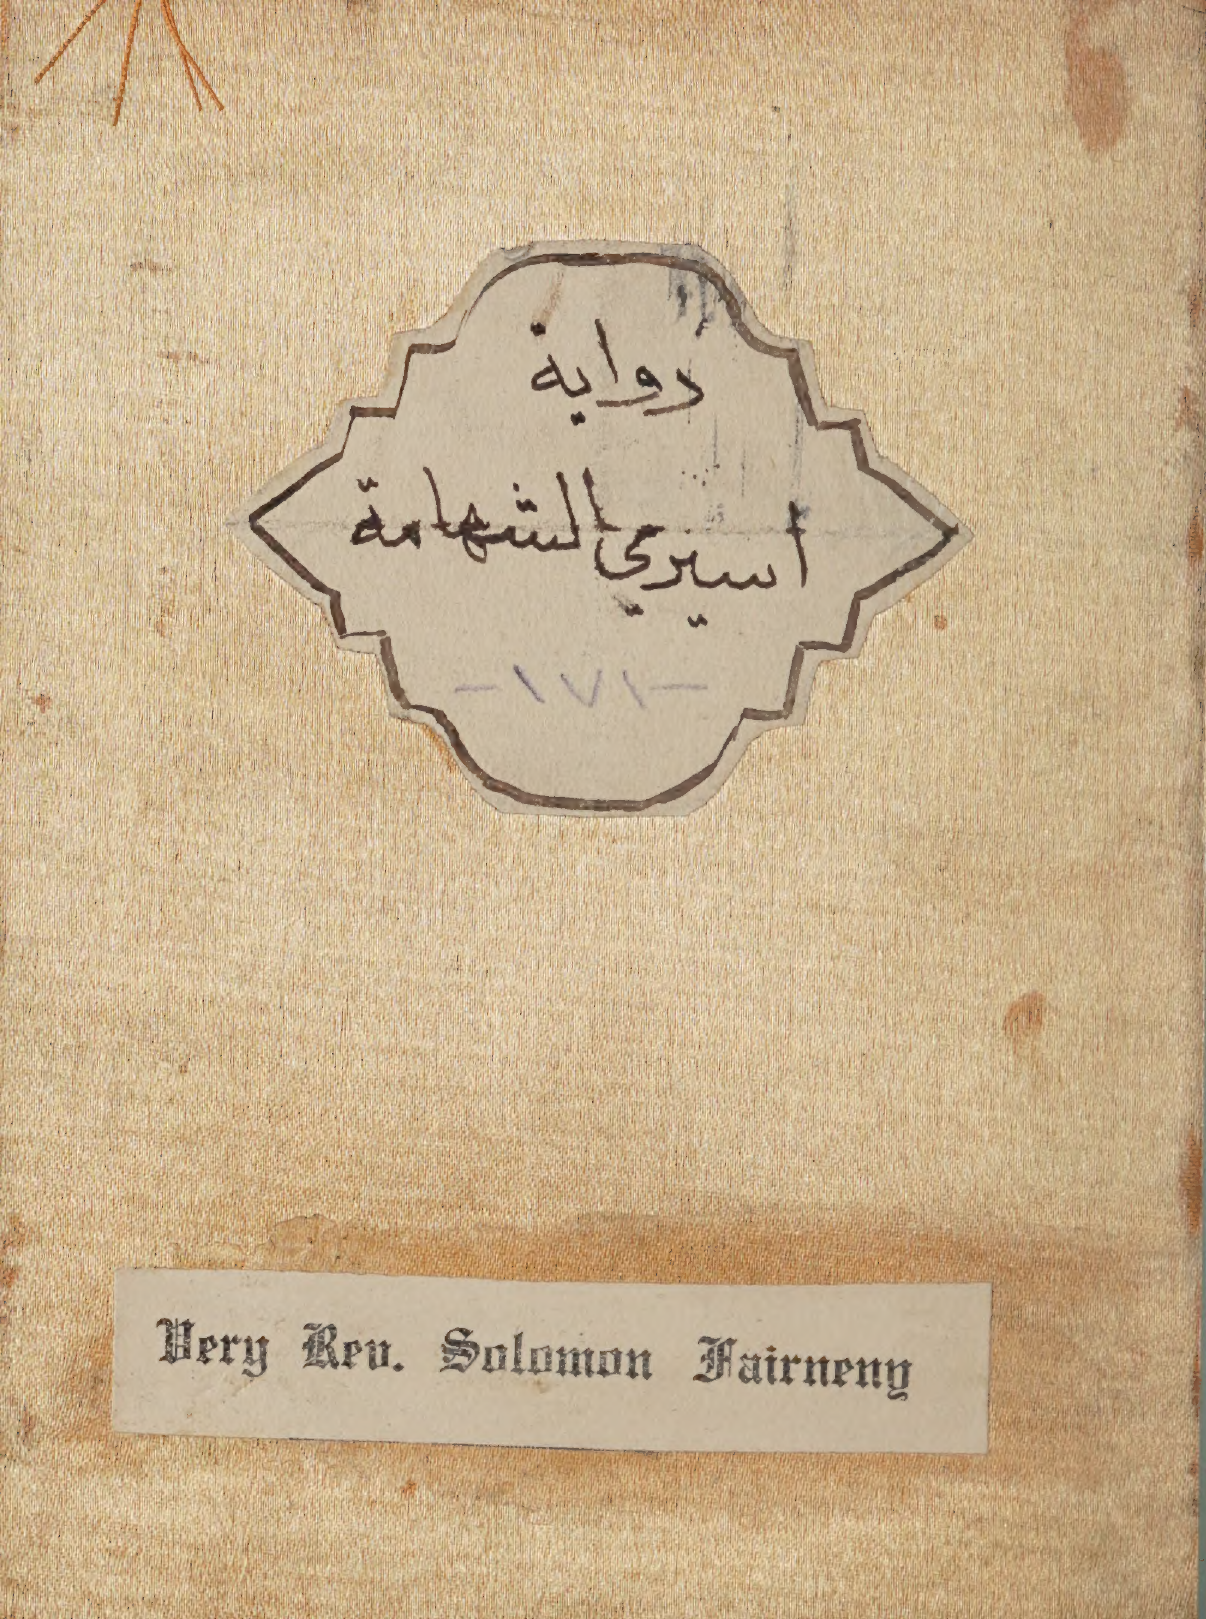 رواية
اسيري الشهامة
-١٧١-
Very Rev. Solomon Fairneny